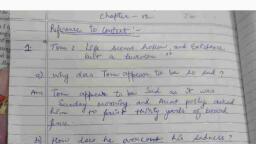 Chapter - 12
Reference to Context :-
Q. Tom : Life seems hollow, and Existence
but a burden "
a) why does Tom appear to be so sad ?
Ans Tom appears to be Sad as it was
Sunday morning and Aunt polly asked
him to paint thirty yards of board
fence.
b) How does he account his sadness?